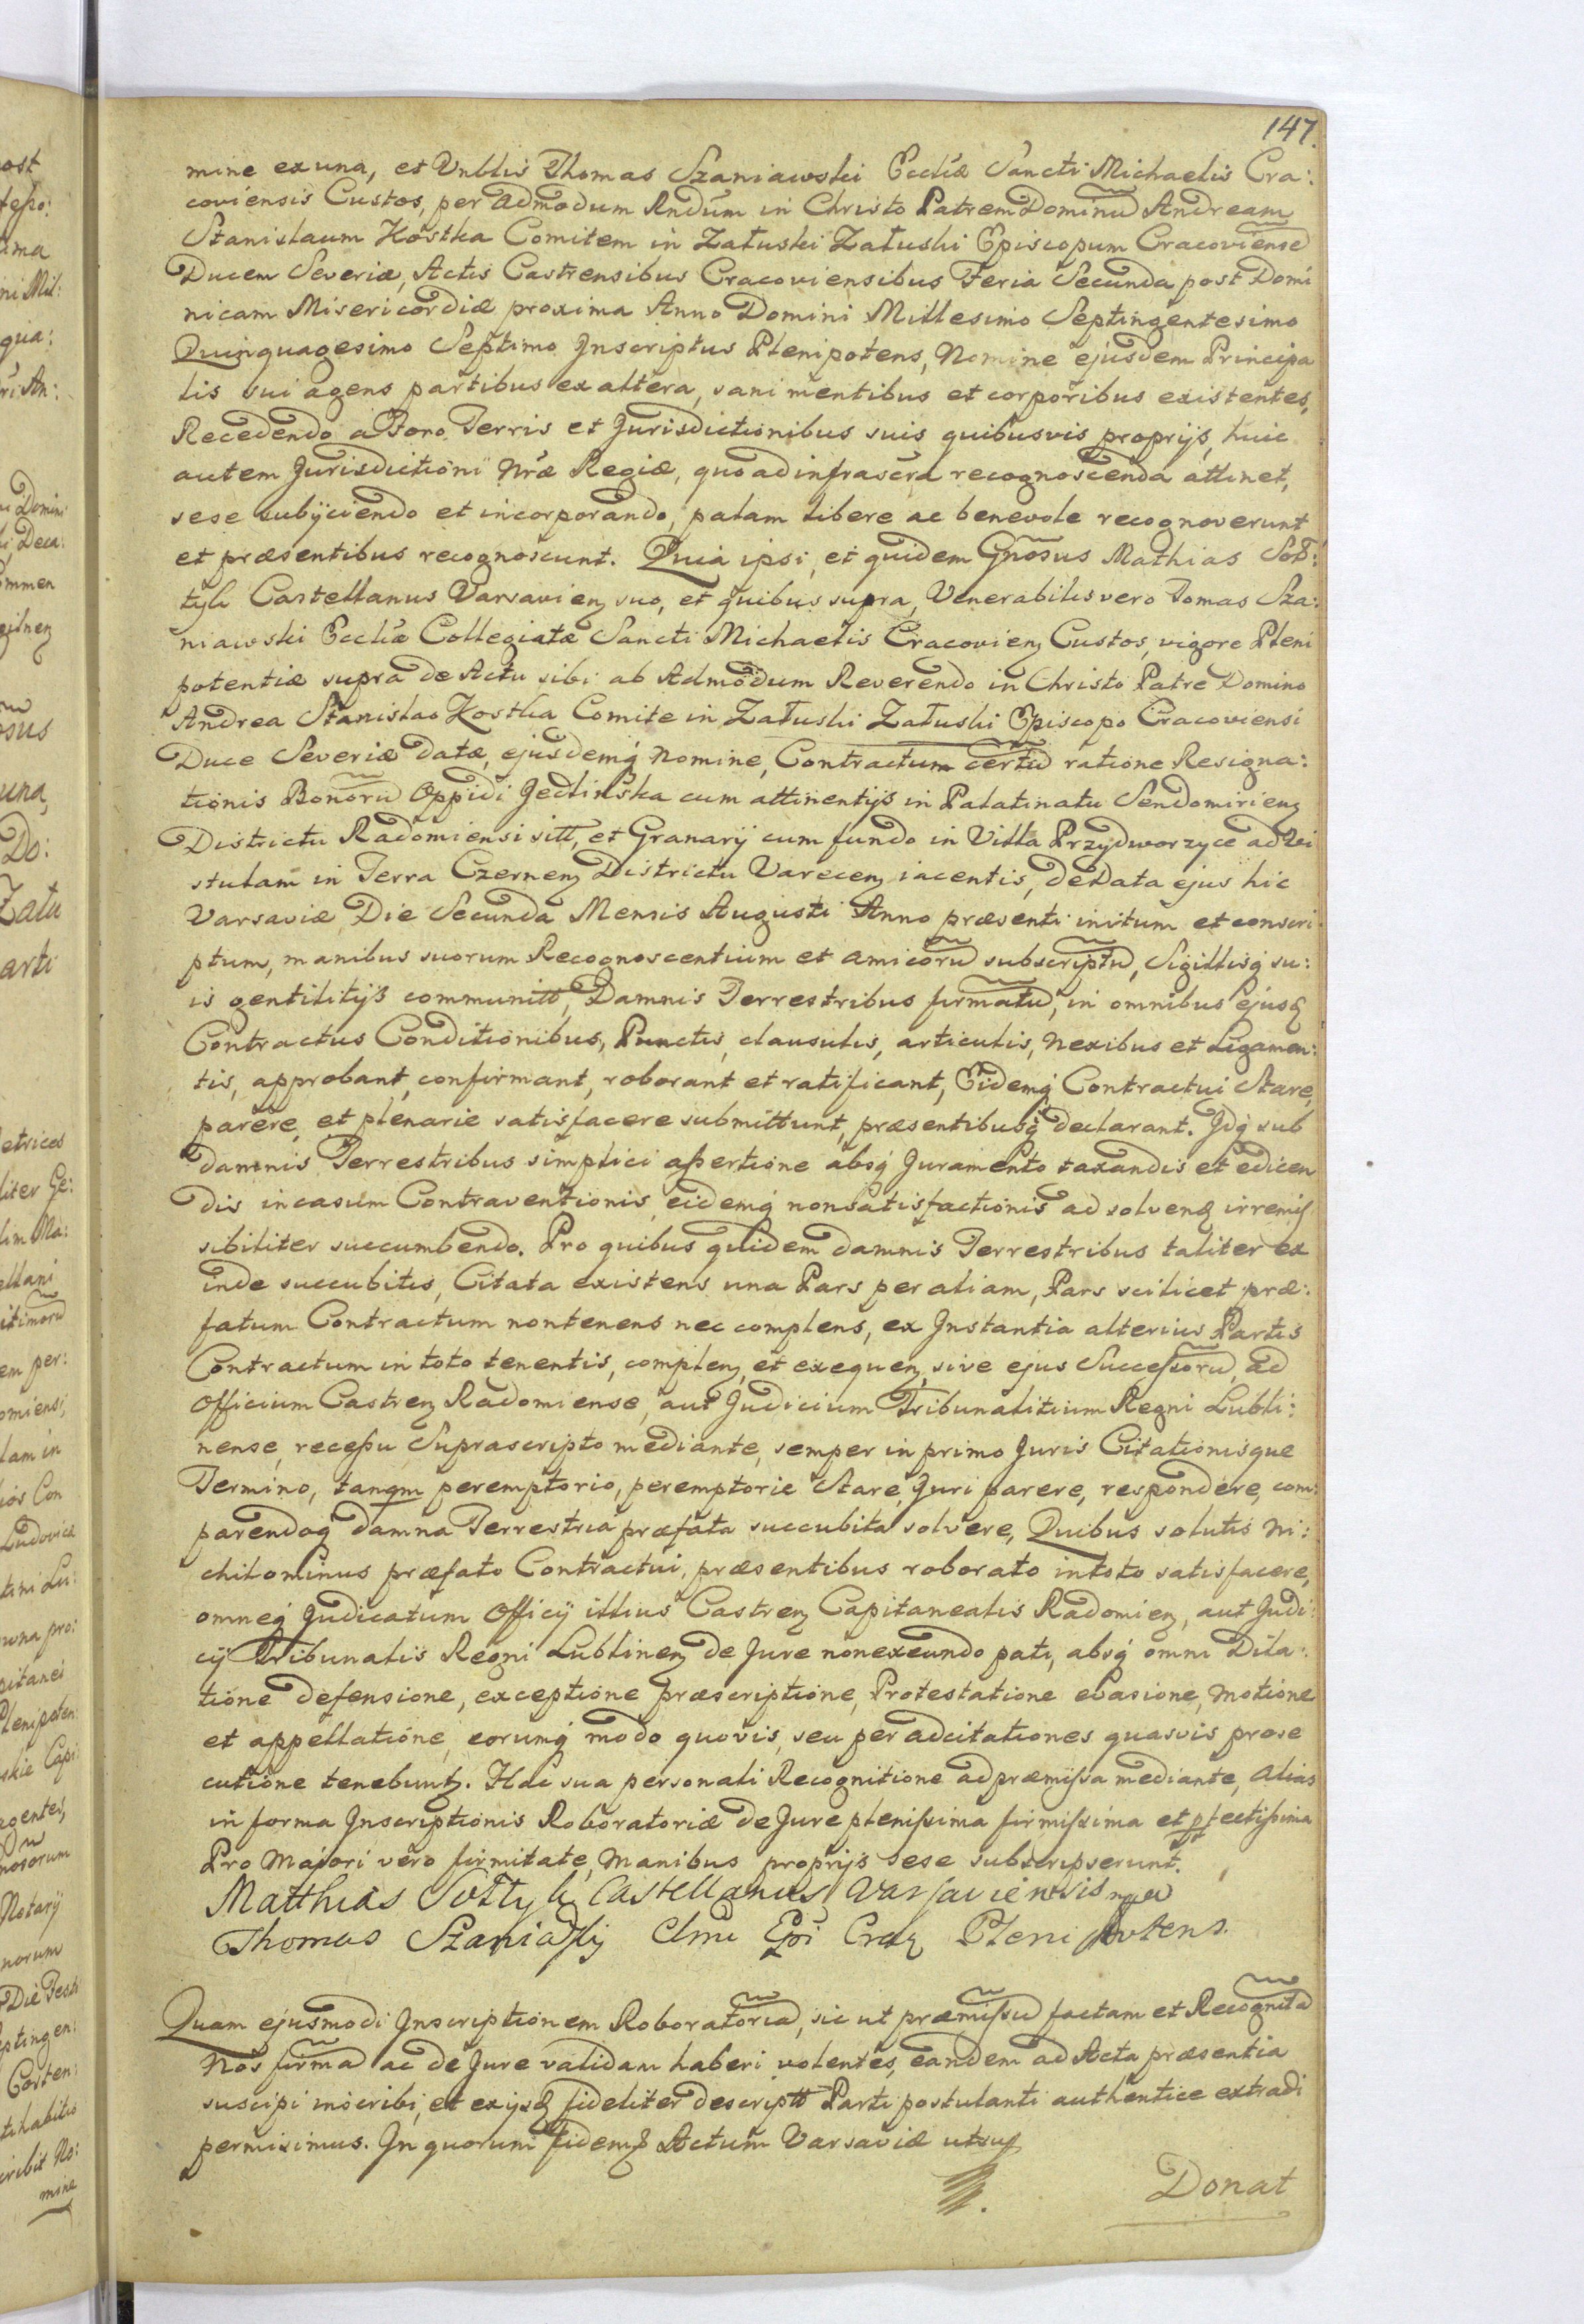 147.
mine ex una, et Vnblis Thomas Szaniawski Eccliæ Sancti Michaelis Cra:
coviensis Custos, per admodum Rndum in Christo Patrem Dominu Andream
Stanislaum Kostka Comitem in Załuski Załuski Episcopum Cracoviense
Ducem Severiæ, Actis Castrensibus Cracoviensibus Feria Secunda post Domi
nicam Misericordiæ proxima Anno Domini Millesimo Septingentesimo
Quinquagesimo Septimo Inscriptus Plenipotens, Nomine ejusdem Principa
lis sui agens partibus ex altera, sani mentibus et corporibus existentes,
Recedendo a Foro Terris et Jurisdictionibus suis quibusvis proprijs, huic
autem Jurisdictioni Nræ Regiæ, quo ad infrascra recognoscenda attinet,
sese subijciendo et incorporando, palam libere ac benevole recognoverunt
et præsentibus recognoscunt. Quia ipsi, et quidem Gnosus Mathias Soł:
tyk Castellanus Varsavien suo, et quibus supra, Venerabilis vero Tomas Sza:
niawski Eccliæ Collegiatæ Sancti Michaelis Cracovien Custos, vigore Pleni
potentiæ supra de Actu sibi ab Admodum Reverendo in Christo Patre Domino
Andrea Stanislao Kostka Comite in Załuski Załuski Episcopo Cracoviensi
Duce Severiæ datæ, ejusdemq Nomine, Contractum certu ratione Resigna:
tionis Bonoru Oppidi Jedlińska cum attinentijs in Palatinatu Sendomirien
Districtu Radomiensi sitt, et Granarij cum fundo in Villa Przydworzyce ad Vi
stulam in Terra Czernen Districtu Varecen iacentis, de Data ejus hic
Varsaviæ Die Secunda Mensis Augusti Anno præsenti initum et conscri
ptum, manibus suorum Recognoscentium et amicoru subscriptu, Sigillisq su:
is gentilitijs communitt, Damnis Terrestribus firmatu, in omnibus ejusd
Contractus Conditionibus, Punctis, clausulis, articulis, Nexibus et Ligamen:
tis, approbant, confirmant, roborant et ratificant, Eidemq Contractui Stare,
parere, et plenarie satisfacere submittunt, præsentibusq declarant. Idq sub
damnis Terrestribus simplici aßertione absq Juramento taxandis et edicen
dis in casum Contraventionis, eidemq nonsatisfactionis ad solvend irremis
sibiliter succumbendo. Pro quibus quidem damnis Terrestribus taliter ex
inde succubitis, Citata existens una Pars per aliam, Pars scilicet præ:
fatum Contractum nontenens nec complens, ex Instantia alterius Partis
Contractum in toto tenentis, complen, et exequen, sive ejus Successoru, ad
Officium Castren Radomiense, aut Judicium Tribunalitium Regni Lubli:
nense, receßu Suprascripto mediante, semper in primo Juris Citationisque
Termino, tanqm peremptorio, peremptorie Stare, Juri parere, respondere, com:
parendoq damna Terrestria præfata succubita solvere, Quibus solutis Ni:
chilominus præfato Contractui, præsentibus roborato intoto satisfacere,
omneq Judicatum Officij illius Castren Capitanealis Radomien, aut Judi:
cij Tribunalis Regni Lublinen de Jure nonexeundo pati, absq omni Dila:
tione defensione, exceptione præscriptione, Protestatione evasione, Motione
et appellatione, eorumq modo quovis, seu per adcitationes quasvis prose
cutione tenebuntr. Hac sua personali Recognitione ad præmissa mediante, alias
in forma Inscriptionis Roboratoriæ de Jure plenissima firmissima et pfectißima
Pro Majori vero firmitate, Manibus proprijs sese subscripserunt.
Matthias Sołtyk Castellanus Varsaviensis mpa
Thomas Szaniasky Clmi Epi Crac Plenipotens.
Quam ejusmodi Inscriptionem Roboratoria, sic ut præmissu factam et Recognita
Nos firma ac de Jure validam haberi volentes, eandem ad Acta præsentia
suscipi inscribi, et exijsd fideliter descriptt Parti postulanti authentice extradi
permisimus. In quorum fidem Actum Varsaviæ utsup
Donat